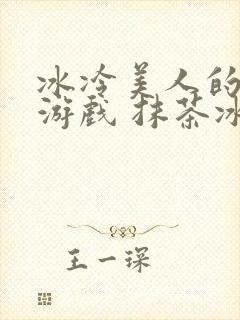 冰冷美人的
游戏 抹茶冰
王一琛